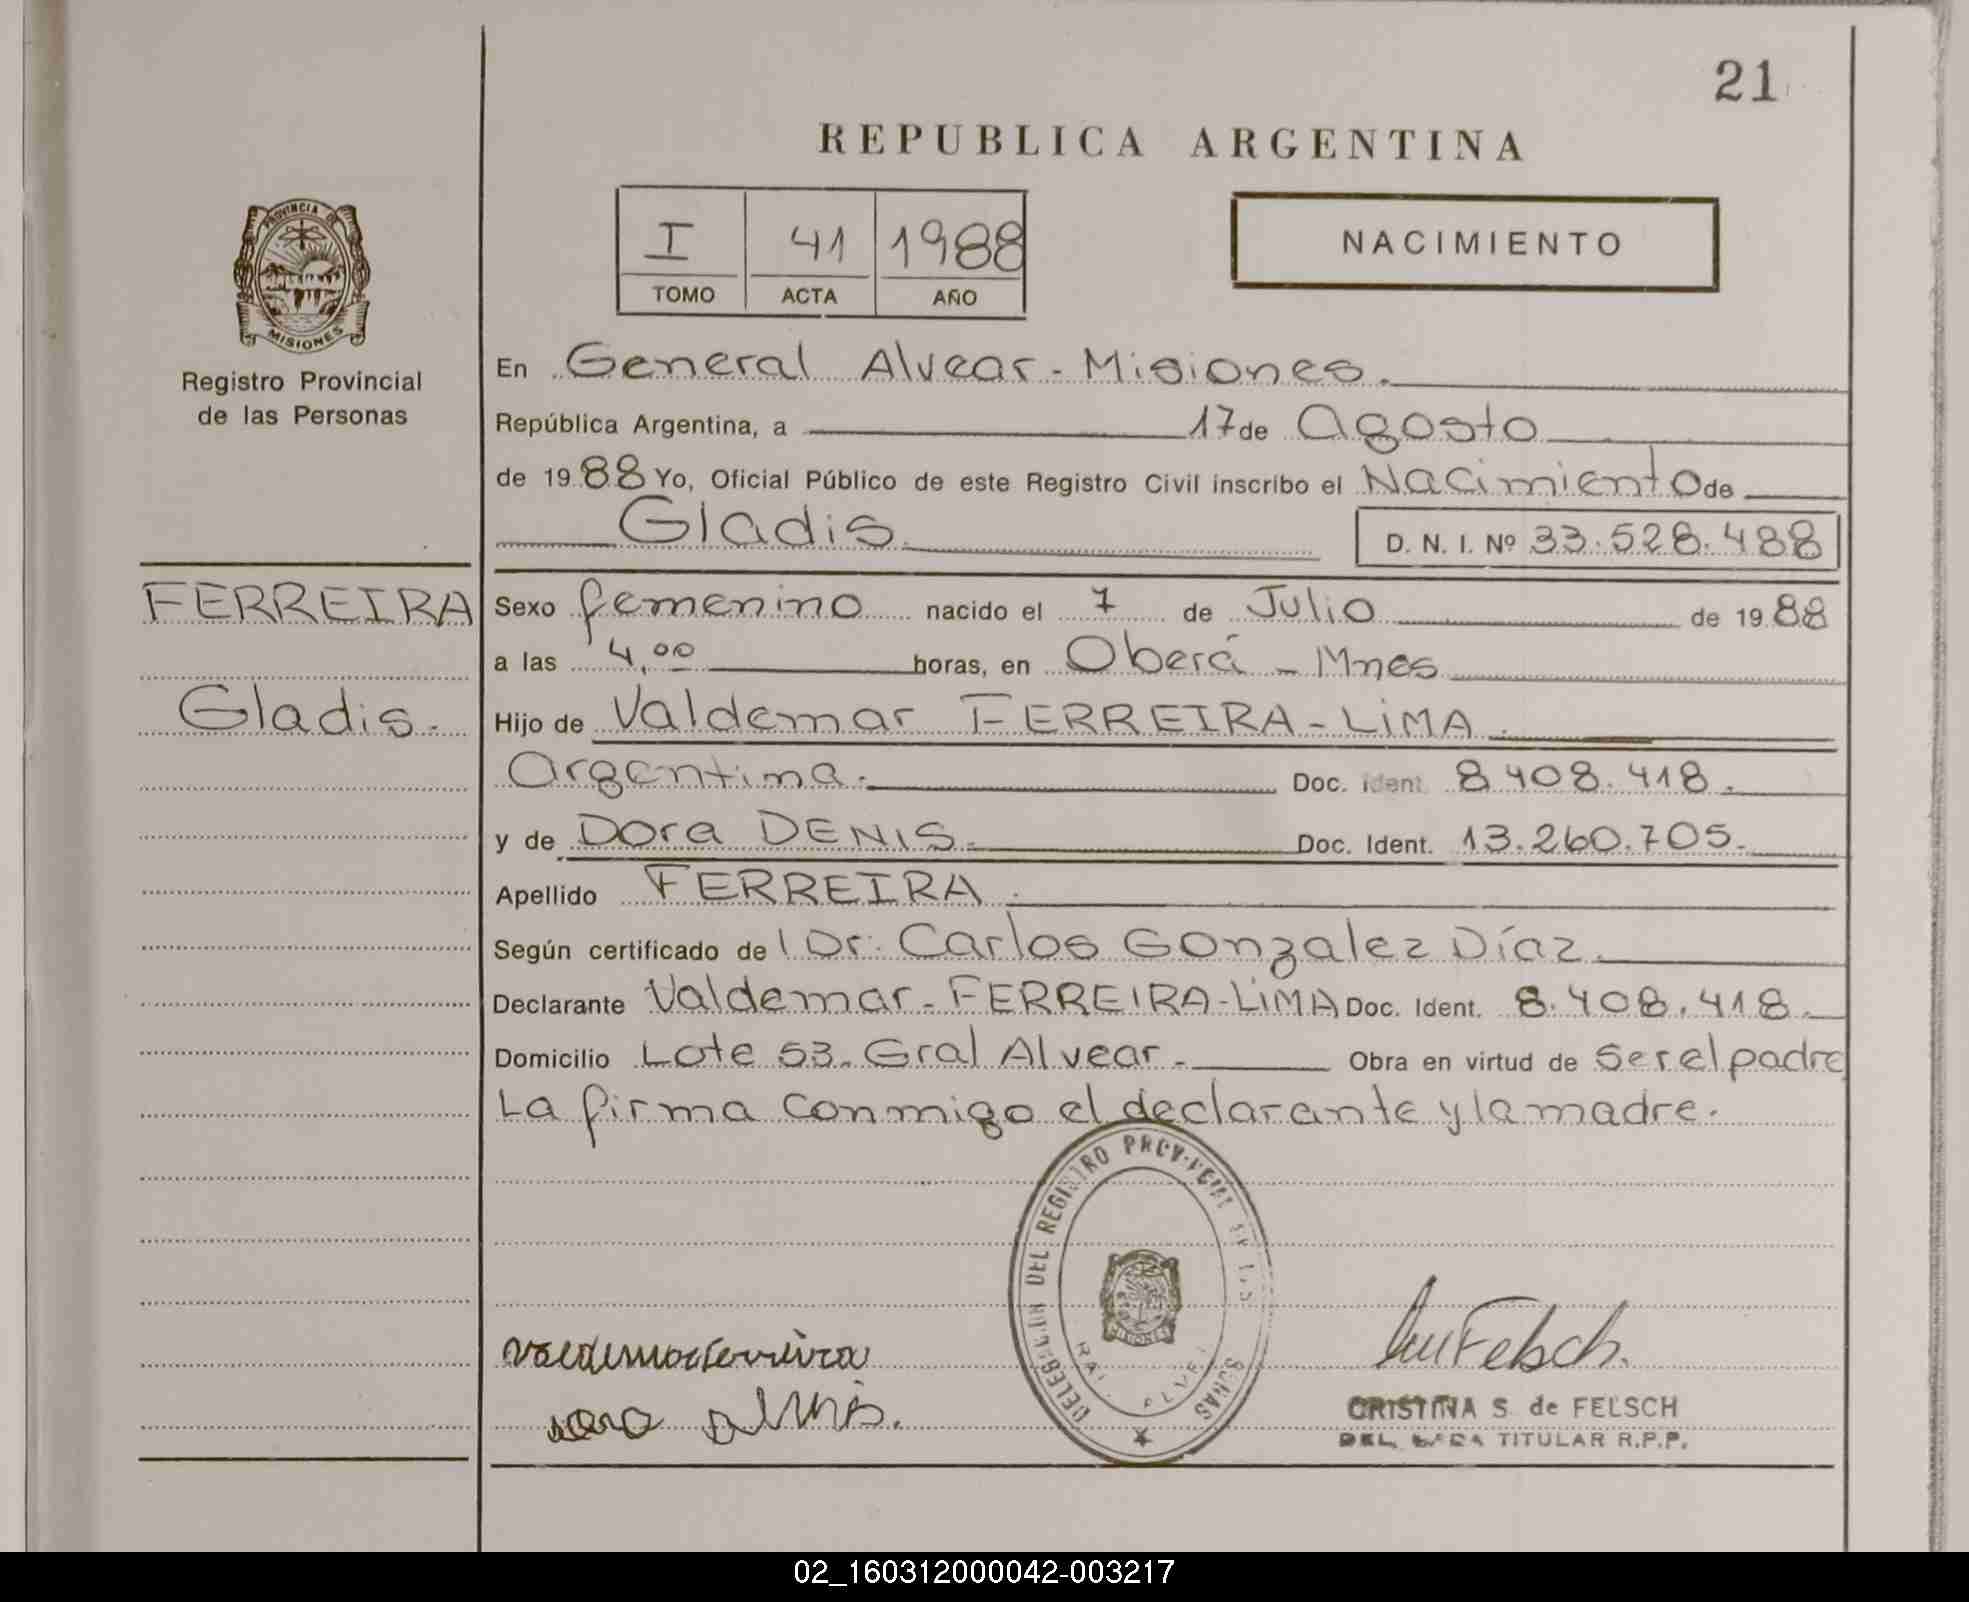 21
REPUBLICA ARGENTINA
I 41 1988
TOMO ACTA AÑO
NACIMIENTO
PROVINCIA DE
MISIONES
Registro Provincial
de las Personas
FERREIRA
Gladis.
En General Alvear - Misiones.
República Argentina, a 17 de Agosto
de 1988 Yo, Oficial Público de este Registro Civil inscribo el Nacimiento de
Gladis D. N. I. Nº 33.528.488
Sexo femenino nacido el 7 de Julio de 1988
a las 4,00 horas, en Oberá - Mnes
Hijo de Valdemar FERREIRA - LiMA
Argentina. Doc. Ident. 8.408.418.
y de Dora DENIS. Doc. Ident. 13.260.705.
Apellido FERREIRA.
Según certificado de Dr. Carlos Gonzalez Díaz.
Declarante Valdemar - FERREIRA - LiMA Doc. Ident. 8.408.418.
Domicilio Lote 53. Gral Alvear. Obra en virtud de Ser el padre
La firma conmigo el declarante y la madre.
DEL REGISTRO PROVINCIAL DE LAS
Valdemar Ferreira
Dora Denis.
Felsch.
CRISTINA S. de FELSCH
TITULAR R.P.P.
02_160312000042-003217